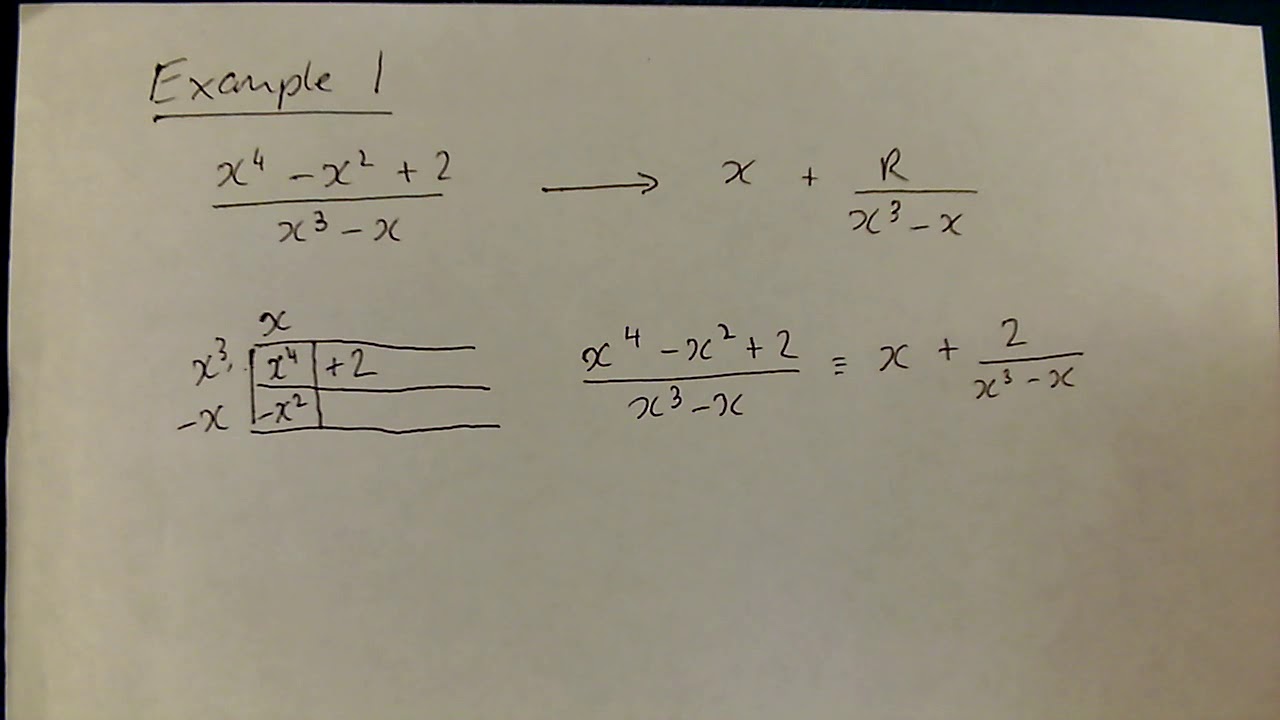 Example 1
x⁴ − x² + 2 / x³ − x → x + R / x³ − x
x
x³ x⁴ +2
−x −x²
x⁴ − x² + 2 / x³ − x ≡ x + 2 / x³ − x